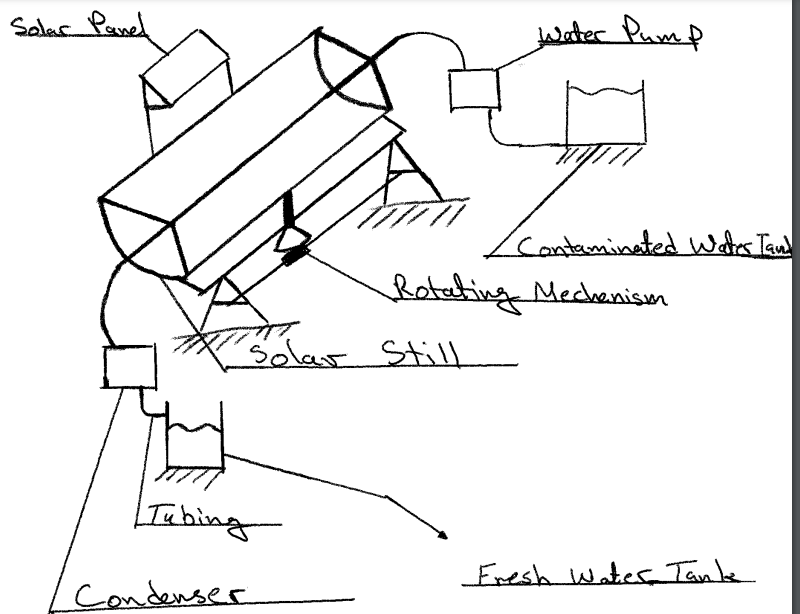 Solar Panel
Water Pump
Contaminated Water Tank
Rotating Mechanism
Solar Still
Tubing
Fresh Water Tank
Condenser